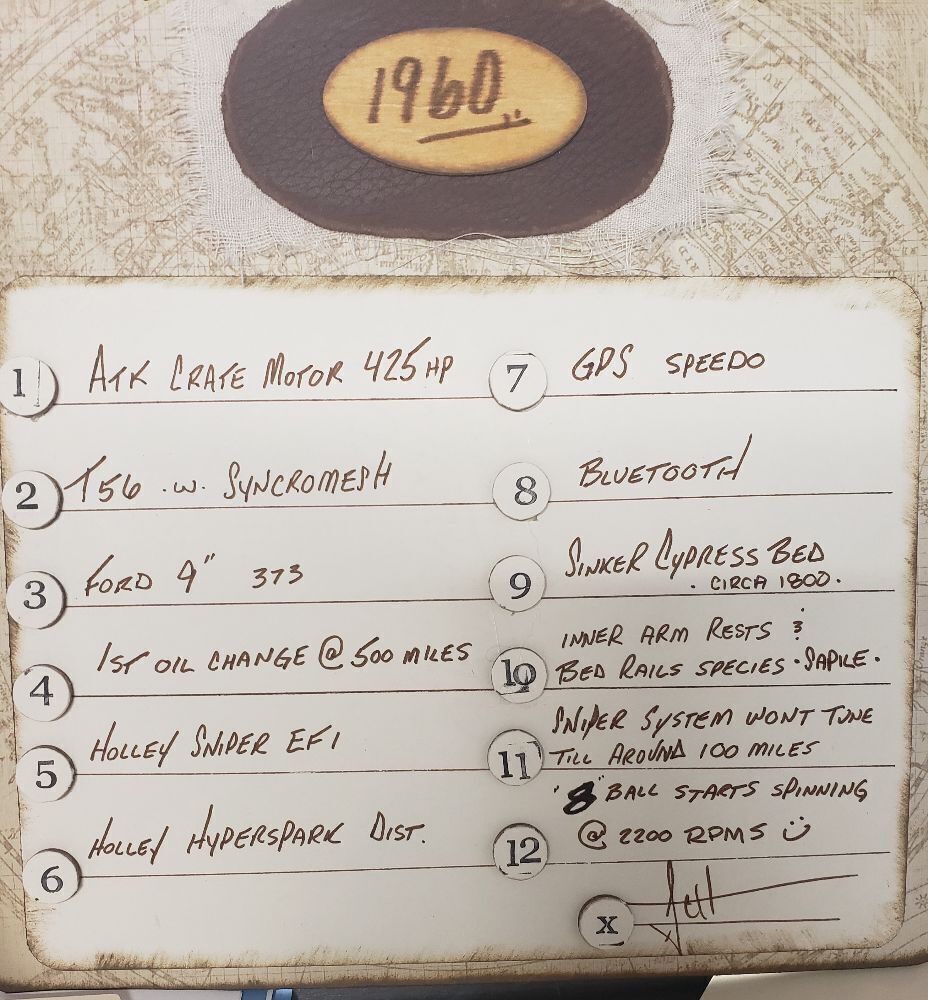 1960
1 ATK CRATE MOTOR 425 HP
2 T56 .W. SYNCROMESH
3 FORD 9" 373
4 1ST OIL CHANGE @ 500 MILES
5 HOLLEY SNIPER EFI
6 HOLLEY HYPERSPARK DIST.
7 GPS SPEEDO
8 BLUETOOTH
9 SINKER CYPRESS BED
. CIRCA 1800.
10 INNER ARM RESTS &
BED RAILS SPECIES · SAPILE ·
11 SNIPER SYSTEM WONT TUNE
TILL AROUND 100 MILES
12 "8" BALL STARTS SPINNING
@ 2200 RPMS
X